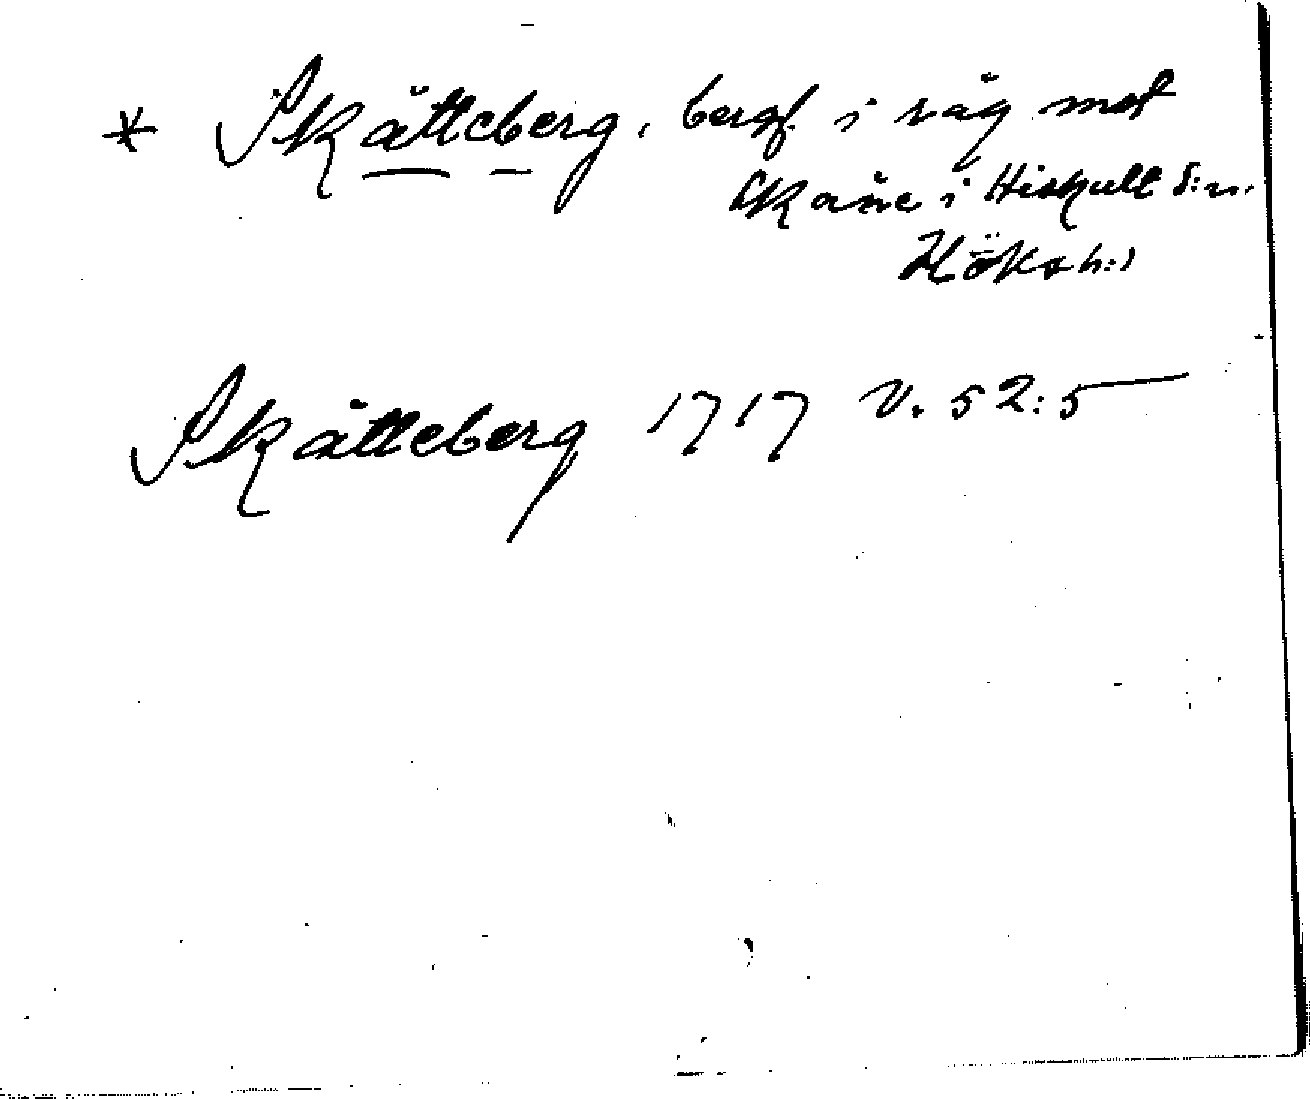 * Skätteberg, bergf. i råg mot
Skåne i Hishult s:n.
Höks h:d
Skätteberg 1717 V. 52:5